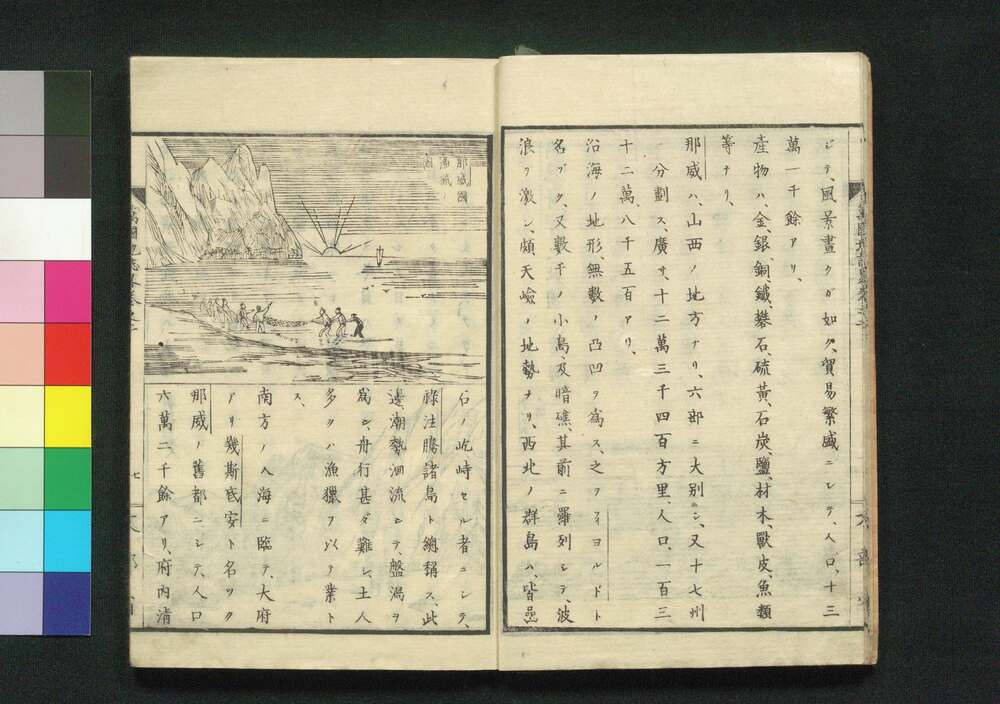 シテ、風景畫クガ如ク、貿易繁盛ニシテ、人口、十三
萬一千餘アリ、
産物ハ、金、銀、銅、鐵、礬石、硫黄、石炭、鹽、材木、獸皮、魚類
等ナリ、
那威ハ、山西ノ地方ナリ、六部ニ大別シ、又十七州
ニ分劃ス、廣サ、十二萬三千四百方里、人口、一百三
十二萬八千五百アリ、
沿海ノ地形、無數ノ凸凹ヲ爲ス、之ヲフィヨルドト
名ヅク、又數千ノ小島、及暗礁、其前ニ羅列シテ、波
浪ヲ激シ、頗天嶮ノ地勢ナリ、西北ノ群島ハ、皆
那威國
漁獵ノ
圖
石ノ屹峙セル者ニシテ、
祿注騰諸島ト總稱ス、此
邊潮勢洄流シテ、盤渦ヲ
爲シ、舟行甚ダ難シ、土人
多クハ漁獵ヲ以テ業ト
ス、
南方ノ入海ニ臨テ、大府
アリ幾斯底安ト名ヅク
那威ノ舊都ニシテ、人口
六萬二千餘アリ、府内清